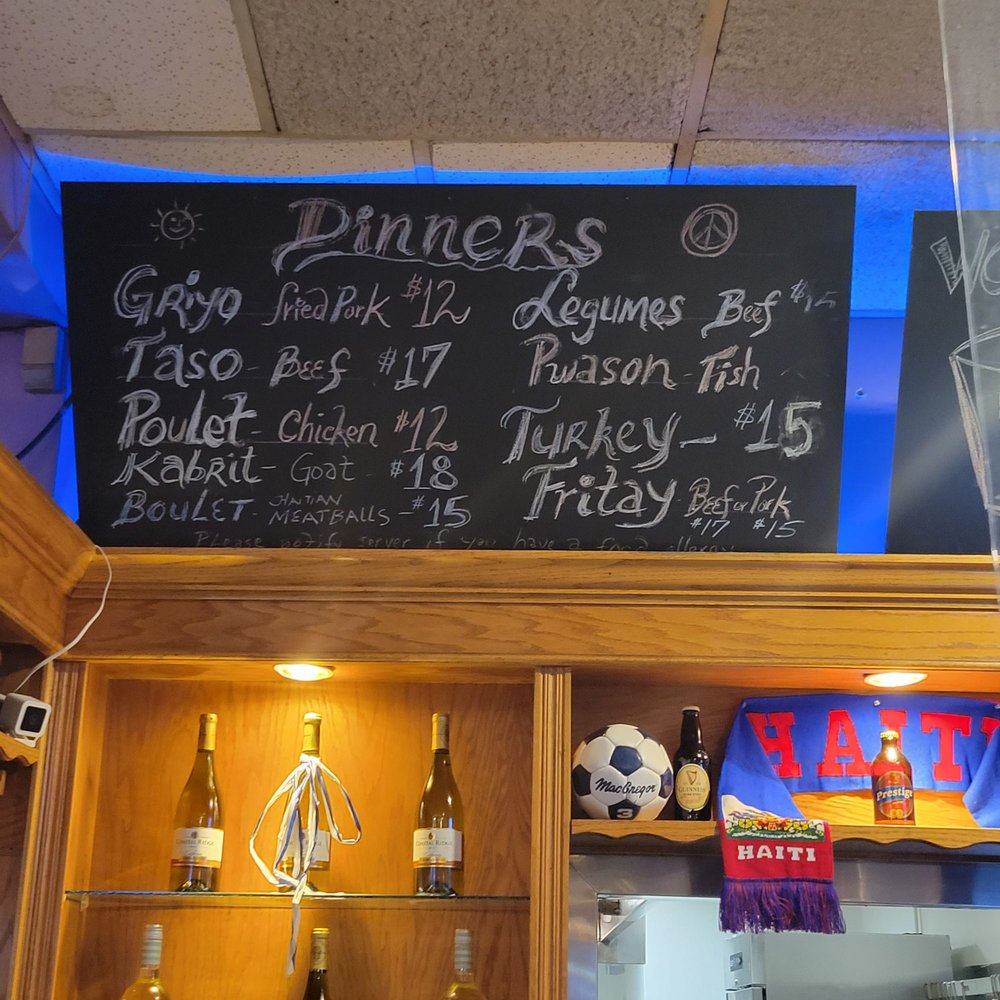 Dinners
Griyo fried Pork $12
Taso - Beef $17
Poulet - Chicken $12
Kabrit - Goat - $18
Boulet - Haitian Meatballs - $15
Legumes Beef $15
Pwason - Fish -
Turkey - $15
Fritay - Beef or Pork
$17 $15
Please notify server if you have a food allergy
MacGregor
3
GUINNESS
HAITI
Prestige
HAITI
COASTAL RIDGE
COASTAL RIDGE